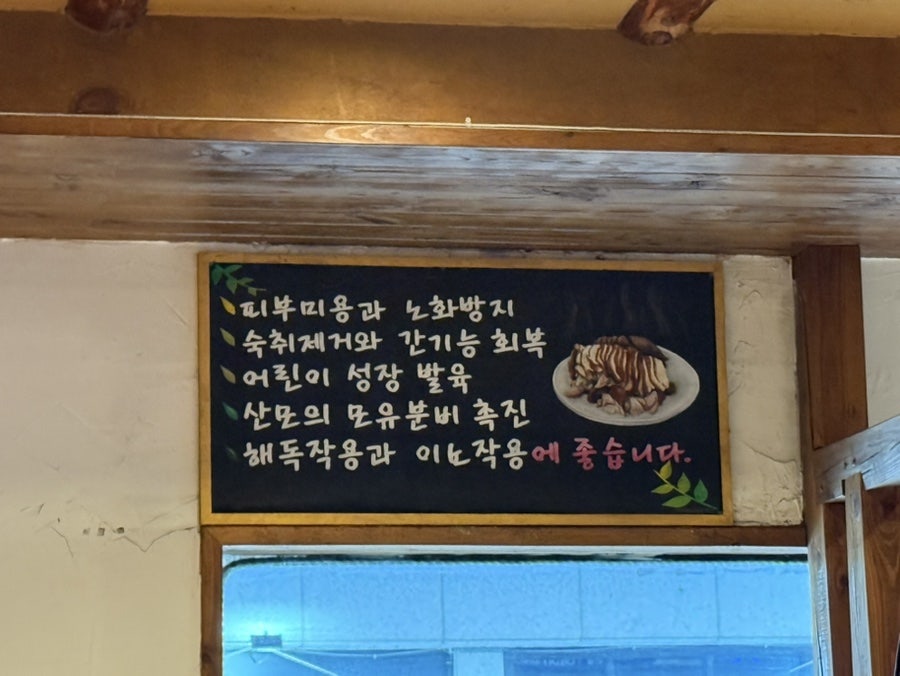 피부미용과 노화방지
숙취제거와 간기능 회복
어린이 성장 발육
산모의 모유분비 촉진
해독작용과 이뇨작용에 좋습니다.